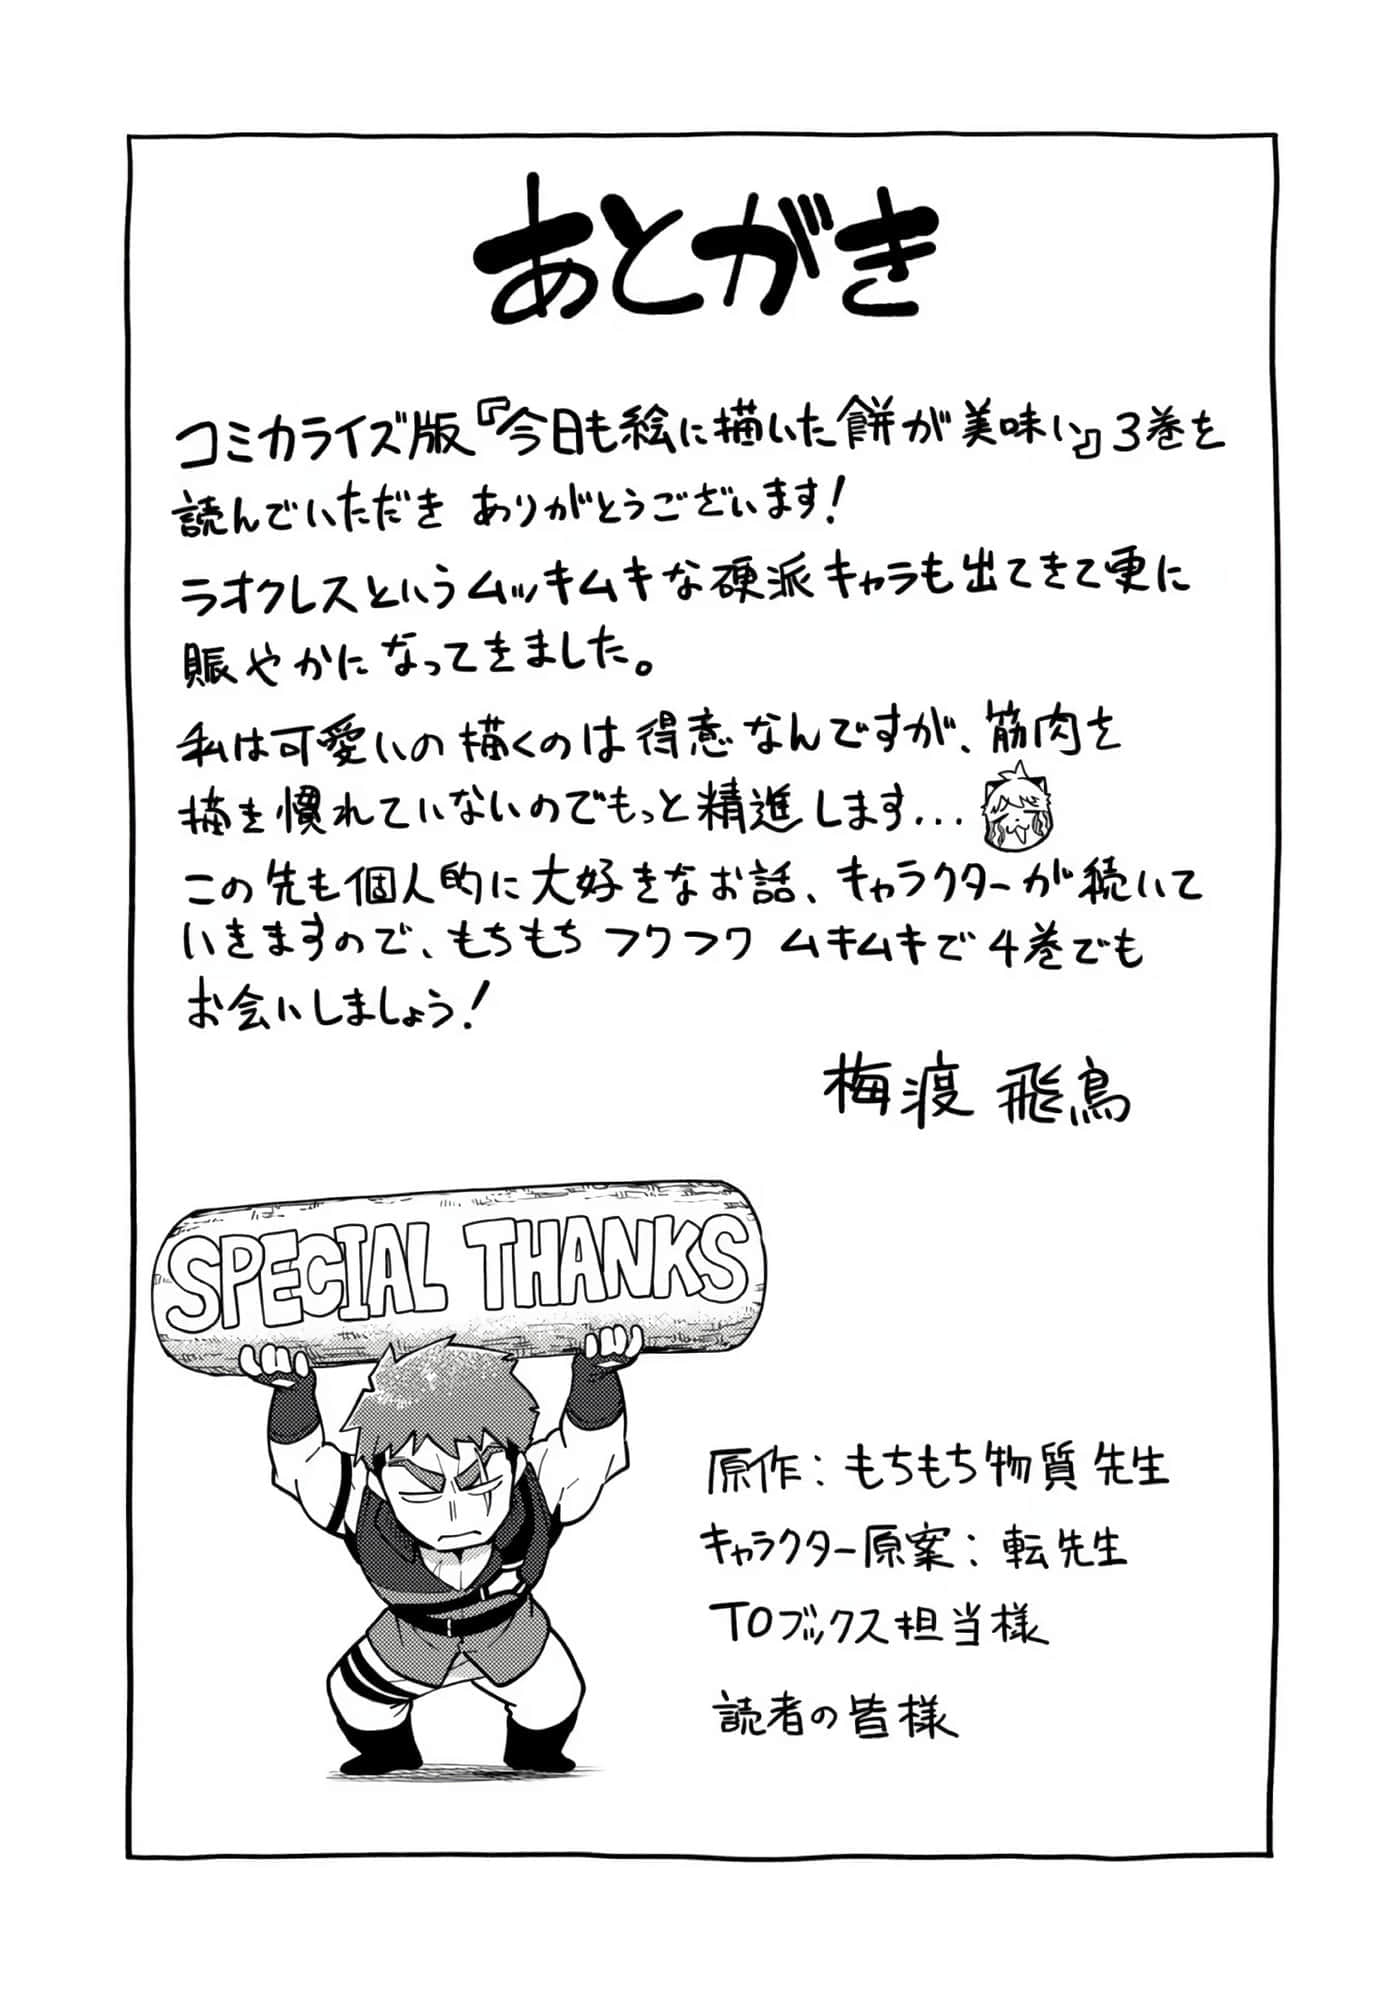 あとがき
コミカライズ版『今日も絵に描いた餅が美味い』3巻を
読んでいただき ありがとうございます!
ラオクレスというムッキムキな硬派キャラも出てきて更に
賑やかになってきました。
私は可愛いの描くのは得意なんですが、筋肉を
描き慣れていないのでもっと精進します...
この先も個人的に大好きなお話、キャラクターが続いて
いきますので、もちもち フワフワ ムキムキで4巻でも
お会いしましょう!
梅渡 飛鳥
SPECIAL THANKS
原作:もちもち物質 先生
キャラクター原案:転先生
TOブックス担当様
読者の皆様